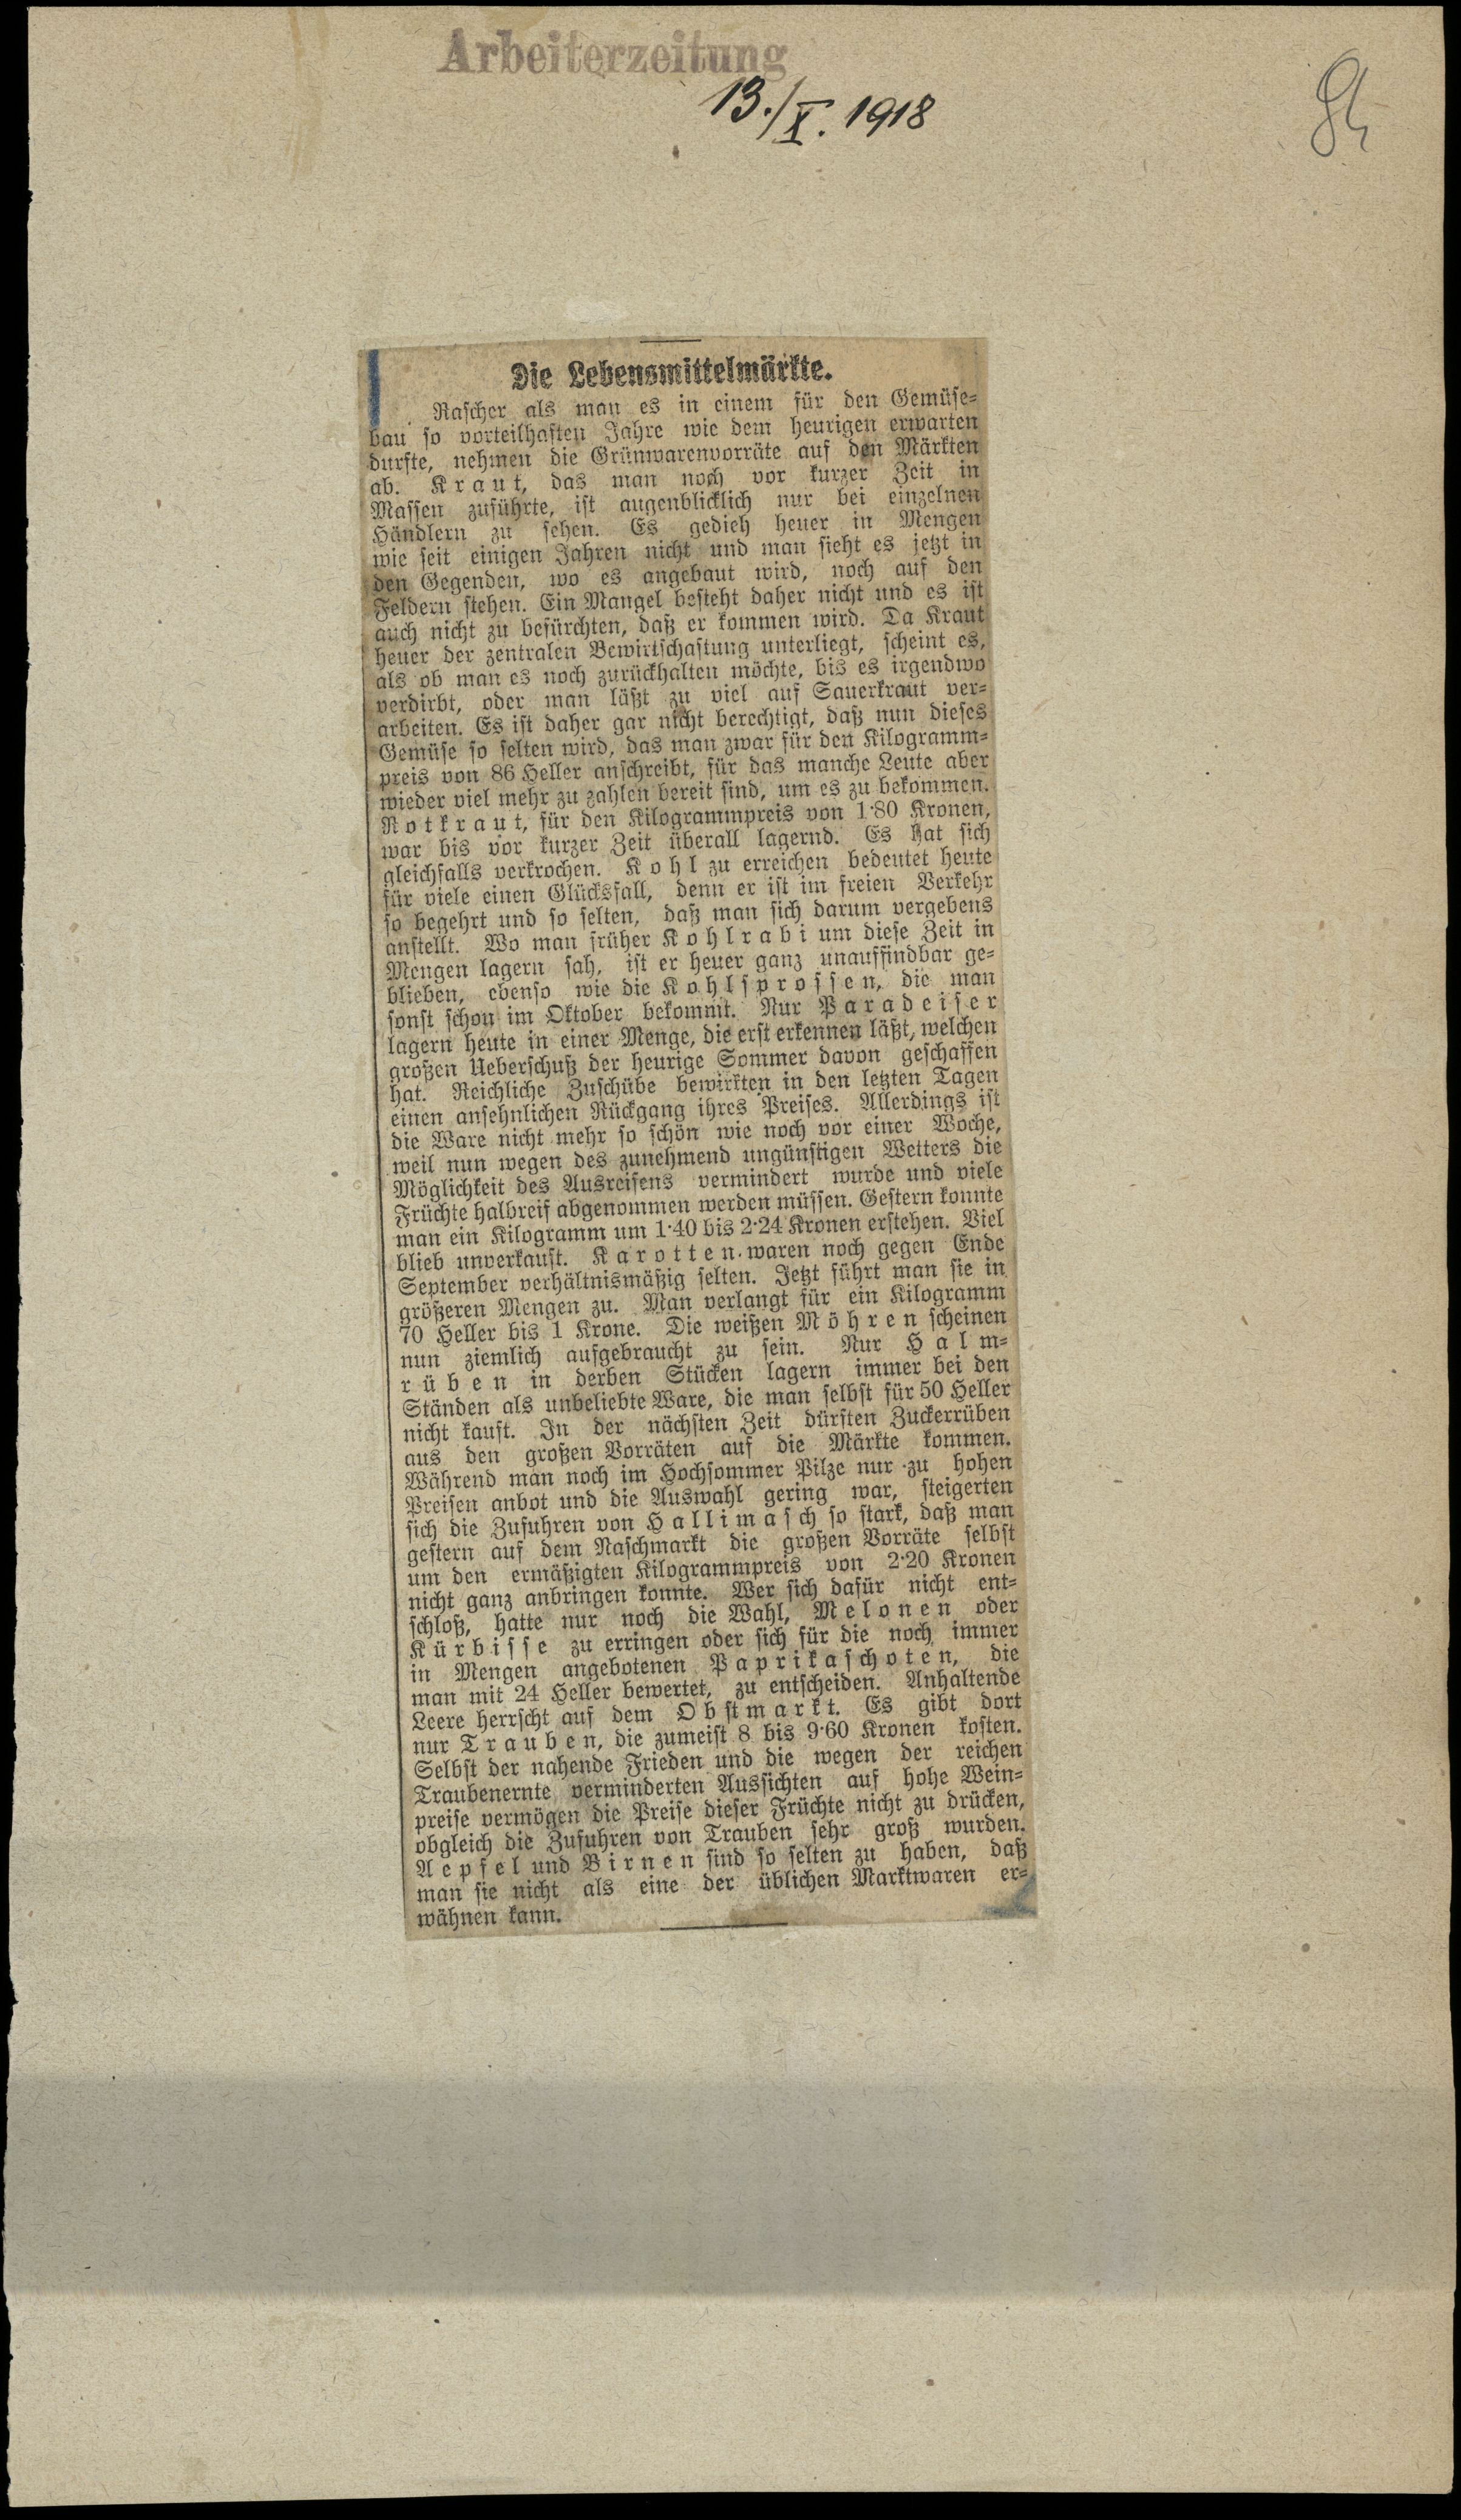 Arbeiterzeitung
13./X. 1918
Die Lebensmittelmärkte.
Rascher als man es in einem für den Gemüse-
bau so vorteilhaften Jahre wie dem heurigen erwarten
durfte, nehmen die Grünwarenvorräte auf den Märkten
ab. Kraut, das man noch vor kurzer Zeit in
Massen zuführte, ist augenblicklich nur bei einzelnen
Händlern zu sehen. Es gedieh heuer in Mengen
wie seit einigen Jahren nicht und man sieht es jetzt in
den Gegenden, wo es angebaut wird, noch auf den
Feldern stehen. Ein Mangel besteht daher nicht und es ist
auch nicht zu befürchten, daß er kommen wird. Da Kraut
heuer der zentralen Bewirtschaftung unterliegt, scheint es,
als ob man es noch zurückhalten möchte, bis es irgendwo
verdirbt, oder man läßt zu viel auf Sauerkraut ver-
arbeiten. Es ist daher gar nicht berechtigt, daß nun dieses
Gemüse so selten wird, das man zwar für den Kilogramm-
preis von 86 Heller anschreibt, für das manche Leute aber
wieder viel mehr zu zahlen bereit sind, um es zu bekommen.
Rotkraut, für den Kilogrammpreis von 1·80 Kronen,
war bis vor kurzer Zeit überall lagernd. Es hat sich
gleichfalls verkrochen. Kohl zu erreichen bedeutet heute
für viele einen Glücksfall, denn er ist im freien Verkehr
so begehrt und so selten, daß man sich darum vergebens
anstellt. Wo man früher Kohlrabi um diese Zeit in
Mengen lagern sah, ist er heuer ganz unauffindbar ge-
blieben, ebenso wie die Kohlsprossen, die man
sonst schon im Oktober bekommt. Nur Paradeiser
lagern heute in einer Menge, die erst erkennen läßt, welchen
großen Ueberschuß der heurige Sommer davon geschaffen
hat. Reichliche Zuschübe bewirkten in den letzten Tagen
einen ansehnlichen Rückgang ihres Preises. Allerdings ist
die Ware nicht mehr so schön wie noch vor einer Woche,
weil nun wegen des zunehmend ungünstigen Wetters die
Möglichkeit des Ausreifens vermindert wurde und viele
Früchte halbreif abgenommen werden müssen. Gestern konnte
man ein Kilogramm um 1·40 bis 2·24 Kronen erstehen. Viel
blieb unverkauft. Karotten waren noch gegen Ende
September verhältnismäßig selten. Jetzt führt man sie in
größeren Mengen zu. Man verlangt für ein Kilogramm
70 Heller bis 1 Krone. Die weißen Möhren scheinen
nun ziemlich aufgebraucht zu sein. Nur Halm-
rüben in derben Stücken lagern immer bei den
Ständen als unbeliebte Ware, die man selbst für 50 Heller
nicht kauft. In der nächsten Zeit dürften Zuckerrüben
aus den großen Vorräten auf die Märkte kommen.
Während man noch im Hochsommer Pilze nur zu hohen
Preisen anbot und die Auswahl gering war, steigerten
sich die Zufuhren von Hallimasch so stark, daß man
gestern auf dem Naschmarkt die großen Vorräte selbst
um den ermäßigten Kilogrammpreis von 2·20 Kronen
nicht ganz anbringen konnte. Wer sich dafür nicht ent-
schloß, hatte nur noch die Wahl, Melonen oder
Kürbisse zu erringen oder sich für die noch immer
in Mengen angebotenen Paprikaschoten, die
man mit 24 Heller bewertet, zu entscheiden. Anhaltende
Leere herrscht auf dem Obstmarkt. Es gibt dort
nur Trauben, die zumeist 8 bis 9·60 Kronen kosten.
Selbst der nahende Frieden und die wegen der reichen
Traubenernte verminderten Aussichten auf hohe Wein-
preise vermögen die Preise dieser Früchte nicht zu drücken,
obgleich die Zufuhren von Trauben sehr groß wurden.
Aepfel und Birnen sind so selten zu haben, daß
man sie nicht als eine der üblichen Marktwaren er-
wähnen kann.